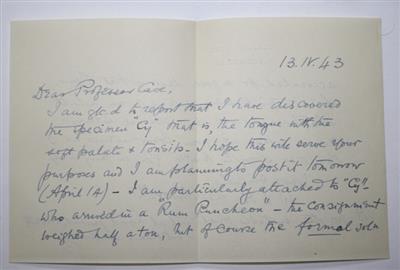 13.IV.43
Dear Professor Cave,
I am glad to report that I have discovered
the specimen "Cy" that is, the tongue with the
soft palate & tonsils. I hope this will serve your
purposes and I am planning to post it tomorrow
(April 14) – I am particularly attached to "Cy" –
who arrived in a "Rum Puncheon" – the consignment
weighed half a ton, but of course the formal soln